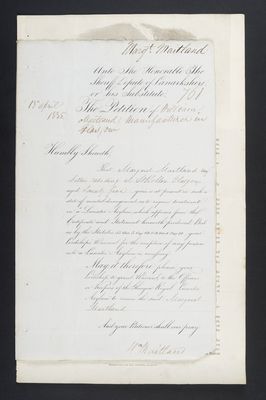 Margt. Maitland
Unto The Honorable The
Sheriff Depute of Lanarkshire
or his Substitute.
701
18 April
1855
The Petition of William
Maitland manufacturer in
Glasgow
Humbly Sheweth,
That Margaret Maitland my
Sister residing at Glasgow
aged years is at present in such a
state of mental derangement as to require treatment
in a Lunatic Asylum which appears from the
Certificate and Statement herewith produced. That
as by the Statutes
Lordship's Warrant for the reception of any person
into a Lunatic Asylum is necessary
May it therefore please your
Lordship to grant Warrant to the Officers
or Keepers of the Glasgow Royal Lunatic
Asylum to receive the said Margaret
Maitland
And your Petitioner shall ever pray
Wm Maitland